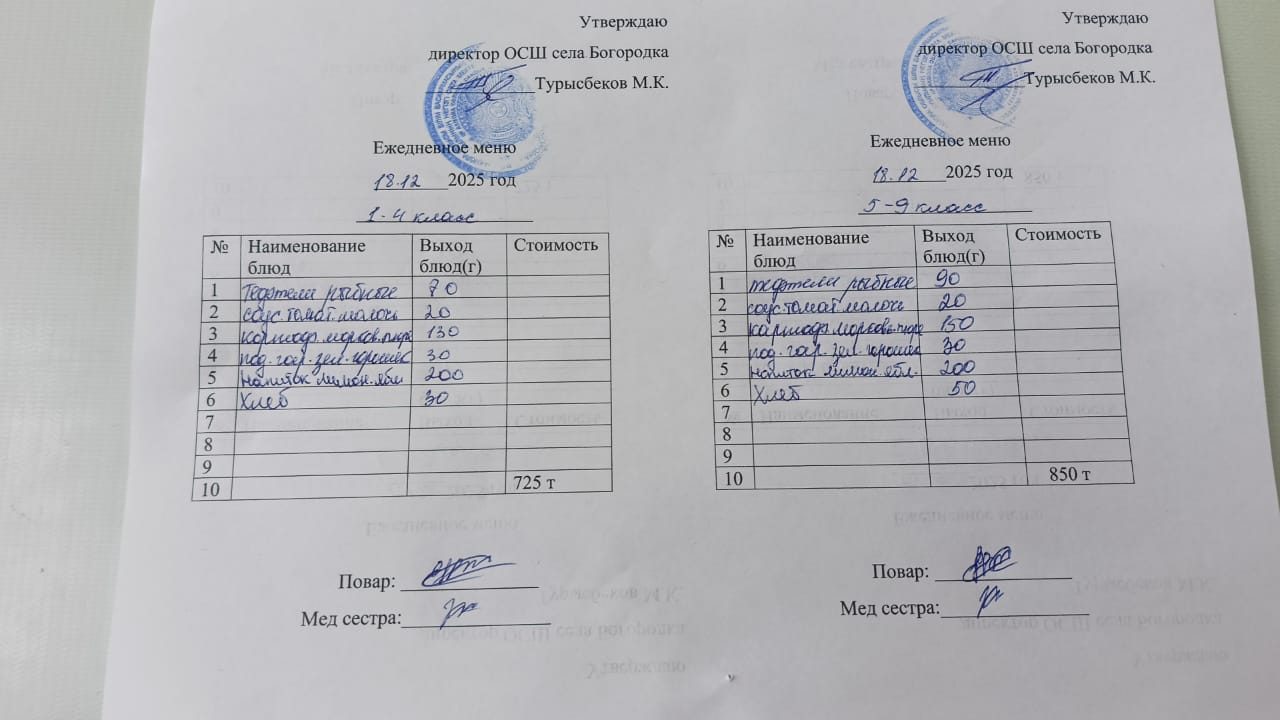 Утверждаю
директор ОСШ села Богородка
Турысбеков М.К.
Ежедневное меню
18.12 2025 год
1-4 класс
№ Наименование блюд Выход блюд(г) Стоимость
1 Тефтели рыбные 70
2 соус.томат.молочн 20
3 картоф. морковь.пюре 130
4 под. гор. зел. горошек 30
5 напиток лимон. ябл 200
6 Хлеб 30
7
8
9
10 725 т
Повар:
Мед сестра:
Утверждаю
директор ОСШ села Богородка
Турысбеков М.К.
Ежедневное меню
18.12 2025 год
5-9 класс
№ Наименование блюд Выход блюд(г) Стоимость
1 тефтели рыбные 90
2 соус.томат.молочн 20
3 картоф. морковь.пюре 150
4 под. гор. зел. горошек 30
5 напиток лимон. ябл. 200
6 Хлеб 50
7
8
9
10 850 т
Повар:
Мед сестра: